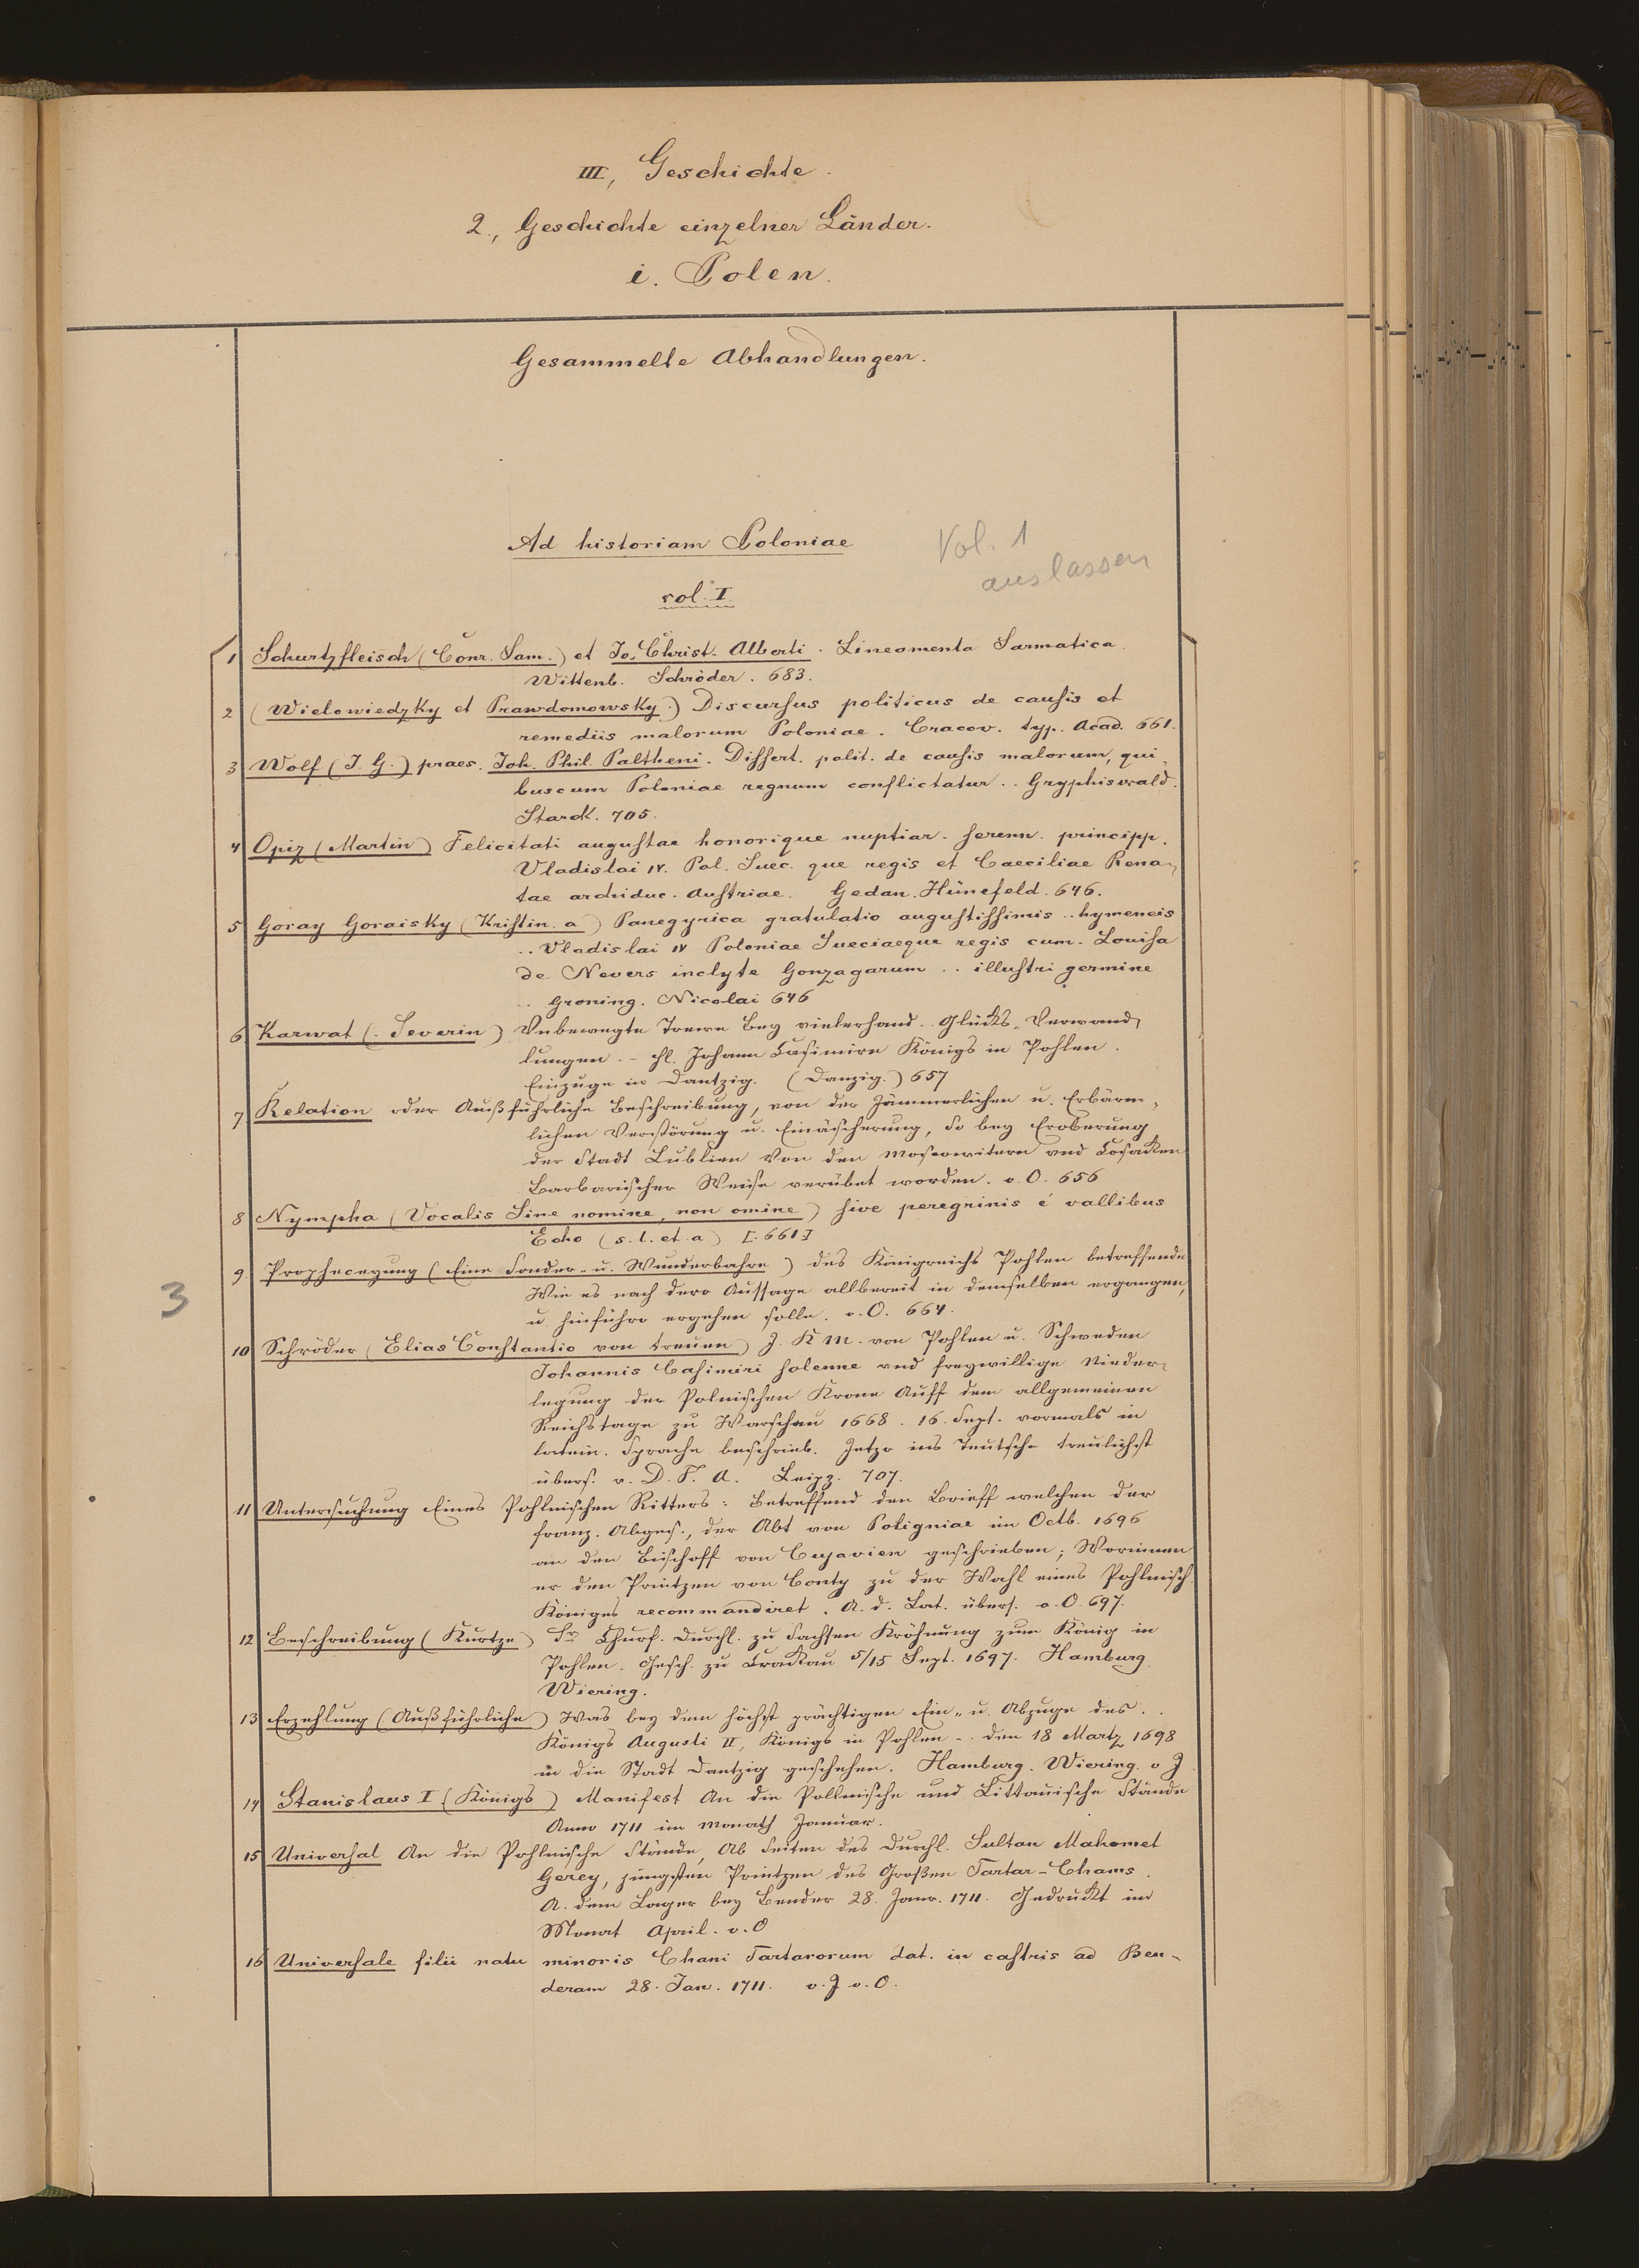 III, Geschichte.
2., Geschichte einzelner Länder.
i. Polen.
Gesammelte Abhandlungen.
Ad historiam Poloniae
Vol. 1
auslassen
vol. I.
1 Schurtzfleisch (Conr. Sam.) et Jo. Christ. Alberti. Lineamenta Sarmatica.
Wittenb. Schröder. 683.
2 (Wielowiedzky et Prawdomowsky.) Discursus politicus de causis et
remediis malorum Poloniae. Cracov. typ. Acad. 661.
3 Wolf (J. G.) praes. Joh. Phil. Paltheni. Dissert. polit. de causis malorum, qui-
buscum Poloniae regnum conflictatur.. Gryphiswald.
Starck. 705.
4 Opiz (Martin) Felicitati augustae honorique nuptiar. seren. principp.
Vladislai IV. Pol. Suec. que regis et Caeciliae Rena-
tae archiduc. Austriae. Gedan. Hünefeld. 646.
5 Goray Goraisky (Kristin. a) Panegyrica gratulatio augustissimis .. hymeneis
.. Vladislai IV Poloniae Sueciaeque regis cum. Louisa
de Nevers inclyte Gonzagarum .. illustri germine
.. Groning. Nicolai 646
6 Karwat (: Severin) Unbewegte Trewe bey vielerhand.. Glücks-Verwand-
lungen .. Johann Casimirn Königs in Pohlen.
Einzuge in Dantzig. (Danzig.) 657
7 Relation oder Außführliche Beschreibung, von der Jämmerlichen u. Erbärm-
lichen Verstörung u. Einäscherung, so bey Eroberung
der Stadt Lublien Von den Moscowitern und Cosacken
Barbarischer Weise verübet worden. o. O. 656
8 Nympha (Vocalis Sine nomine, non omine) sive peregrinis è vallibus
Echo (s. l. et. a) [: 661:]
9 Prophecegung (Eine Sonder- u. Wunderbahre) des Königreichs Pohlen betreffende
Wie es nach dero Aussage allbereit in demselben ergangen,
u. hinführo ergehen solle. o. O. 664.
3
10 Schröder (Elias Constantio von treuen) J. K M. von Pohlen u. Schweden
Johannis Casimiri solenne und freywillige Nieder-
legung der Polnischen Krone Auff dem allgemeinen
Reichstage zu Warschau 1668. 16. Sept. vormals in
latein. Sprache beschrieb. Jetzo ins Teutsche treulichst
übers. v. D. F. A. Leipz. 707.
11 Untersuchung Eines Pohlnischen Ritters: Betreffend den Brieff welchen der
franz. Abges., der Abt von Poligniac im Octb. 1696
an den Bischoff von Cujavien geschrieben; Worinnen
er den Printzen von Conty zu der Wahl eines Pohlnisch.
Königes recommandiret. A. d. Lat. übers. o. O. 697.
12 Beschreibung (Kurtze) Sr Churf. Durchl. zu Sachsen Kröhnung zum König in
Pohlen. Gesch. zu Crackau 5/15 Sept. 1697. Hamburg.
Wiering.
13 Erzehlung (Außführliche) Was bey dem höchst prächtigen Ein- u. Abzuge des..
Königs Augusti II, Königs in Pohlen .. den 18 Martz 1698
in die Stadt Dantzig geschehen. Hamburg. Wiering. o J.
14 Stanislaus I (Königs) Manifest An die Pollnische und Littauische Stände
Anno 1711 im Monath Januar.
15 Universal An die Pohlnische Stände, Ab Seiten des Durchl. Sultan Mahomet
Gerey, jüngsten Printzen des Großen Tartar-Chams.
A. dem Lager bey Bender 28. Janr. 1711. Gedruckt im
Monat April. o. O
16 Universale filii natu minoris Chani Tartarorum dat. in castris ad Ben-
deram 28. Jan. 1711. o. J o. O.